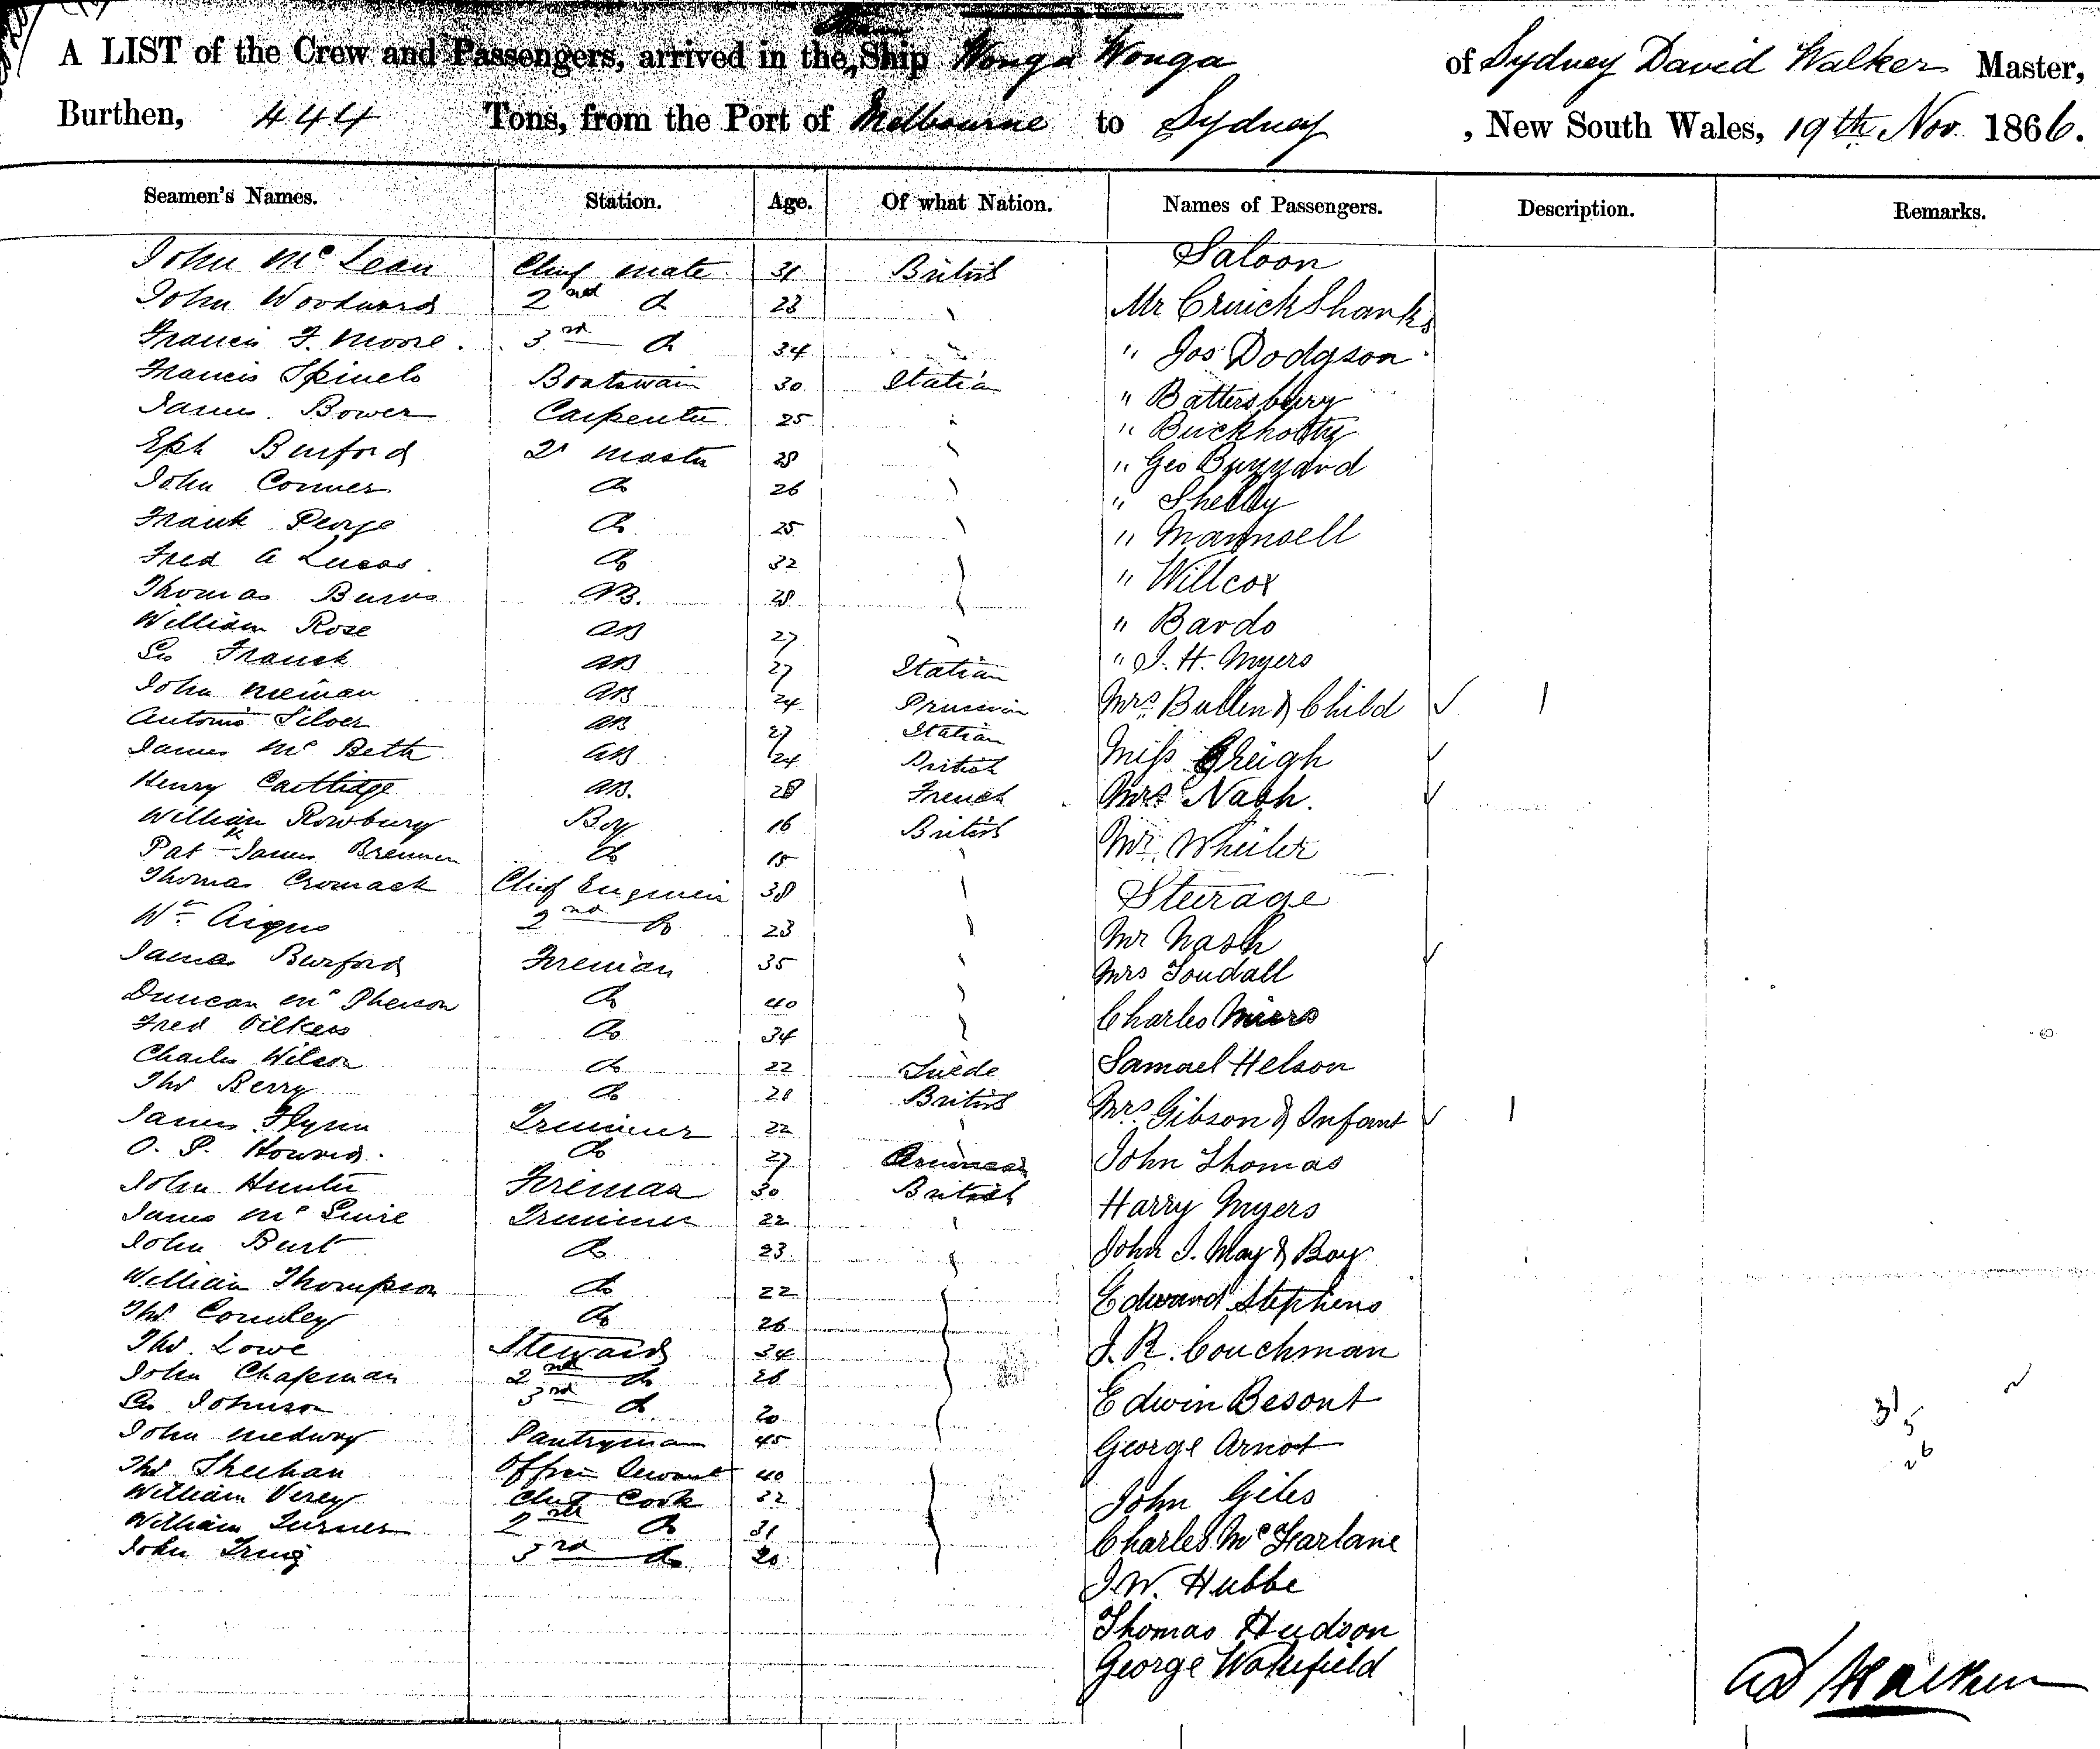 A LIST of the Crew and Passengers, arrived in the Steam Ship Wonga Wonga of Sydney David Walker Master,
Burthen, 444 Tons, from the Port of Melbourne to Sydney, New South Wales, 19th Nov. 1866.
Seamen's Names. Station. Age. Of what Nation. Names of Passengers. Description. Remarks.
John Mc Lean Chief mate 31 British Saloon
John Woodward 2nd do 23 Mr CruickShanks
Francis F. Moore. 3rd do 34 " Jos Dodgson
Francis Spinelo Boatswain 30 Italian " Battersbury
James Bower Carpenter 25 " Buckholtz
Eph Burford Qr Master 28 " Geo Buzzard
John Conner do 26 " Shelly
Frank George do 25 " Mannsell
Fred A Lucas. do 32 " Willcox
Thomas Burns AB. 28 " Bardo
William Rose AB 27 " J. H. Myers
Geo Franck AB 27 Italian
John Neiman AB 24 Prussian Mrs Bullen & Child 1
Antonio Silver AB 27 Italian
James Mc Beth AB 24 British Miss Gheigh
Henry Cartlidge AB. 28 French Mrs Nash.
William Rowbury Boy 16 British Mr. Wheeler
Pat James Brennen do 15
Thomas Cromack Chief Engineer 38 Steerage
Wm Angus 2nd do 23 Mr Nash
James Burford Fireman 35 Mrs Toudall
Duncan Mc Pherson do 40 Charles Miers
Fred Vilkers do 34
Charles Wilson do 22 Suede Samuel Helson
Thos Berry do 28 British Mrs Gibson & Infant 1
James Flynn Trimmer 22
O. P. Howard. do 27 John Thomas
John Hunter Fireman 30 British Harry Myers
James Mc Guire Trimmer 22
John Burt do 23 John J. May & Boy
William Thompson do 22 Edward Stephens
Thos Comley do 26
Thos Lowe Steward 34 J. R. Couchman
John Chapman 2nd do 26 Edwin Besont
Geo Johnson 3rd do 20
John Medway Pantryman 45 George Arnot
Thos Sheehan Officers Servant 40
William Verey Chief Cook 32 John Giles
William Turner 2nd do 31 Charles Mc Farlane
John Irving 3rd do 20
J. W. Hubbe
Thomas Hudson
George Wakefield
Walker